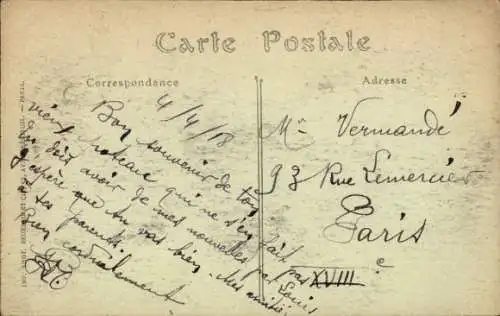 Carte Postale
Correspondance
Adresse
4/4/18
Bon souvenir de ton
vieux poteau qui ne s'en fait pas
Tu dois avoir de mes nouvelles par Louis
J'espère que tu vas bien. Mes amitiés
à tes parents.
Bien cordialement
Mr Vermandé
93 Rue Lemercier
Paris
XVIIIe